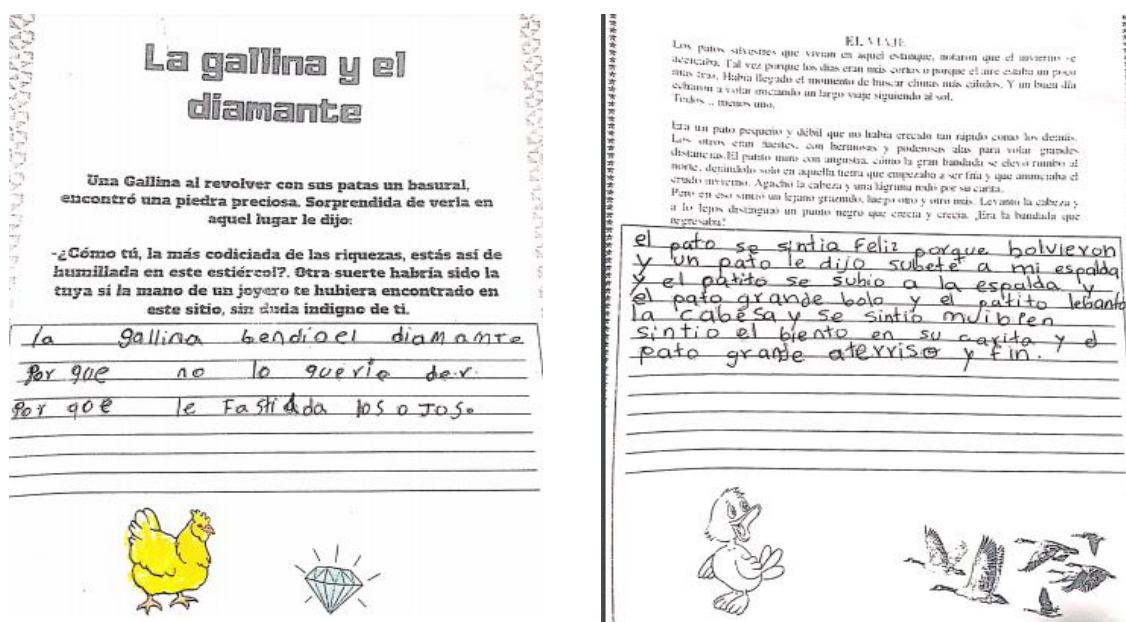 La gallina y el
diamante
Una Gallina al revolver con sus patas un basural,
encontró una piedra preciosa. Sorprendida de verla en
aquel lugar le dijo:
-¿Cómo tú, la más codiciada de las riquezas, estás así de
humillada en este estiércol?. Otra suerte habría sido la
tuya si la mano de un joyero te hubiera encontrado en
este sitio, sin duda indigno de ti.
la gallina bendioel diamante
Por que no lo queria der.
Por que le Fastidada los oJos.
EL VIAJE
Los patos silvestres que vivían en aquel estanque, notaron que el invierno se
acercaba. Tal vez porque los días eran más cortos o porque el aire estaba un poco
mas frio. Había llegado el momento de buscar climas más cálidos. Y un buen día
echaron a volar iniciando un largo viaje siguiendo al sol.
Todos... menos uno.
Era un pato pequeño y débil que no había crecido tan rápido como los demás.
Los otros eran fuertes, con hermosas y poderosas alas para volar grandes
distancias.El patito miro con angustia, cómo la gran bandada se elevó rumbo al
norte, dejándolo solo en aquella tierra que empezaba a ser fría y que anunciaba el
crudo invierno. Agachó la cabeza y una lágrima rodó por su carita.
Pero en eso sintió un lejano graznido, luego otro y otro más. Levantó la cabeza y
a lo lejos distinguió un punto negro que crecía y crecía. ¡Era la bandada que
regresaba!
el pato se sintia Feliz porque bolvieron
y un pato le dijo subete a mi espalda
y el patito se subio a la espalda y
el pato grande bolo y el patito lebanto
la cabesa y se sintio muiblen
sintio el biento en su carita y el
pato grande aterriso y fin.